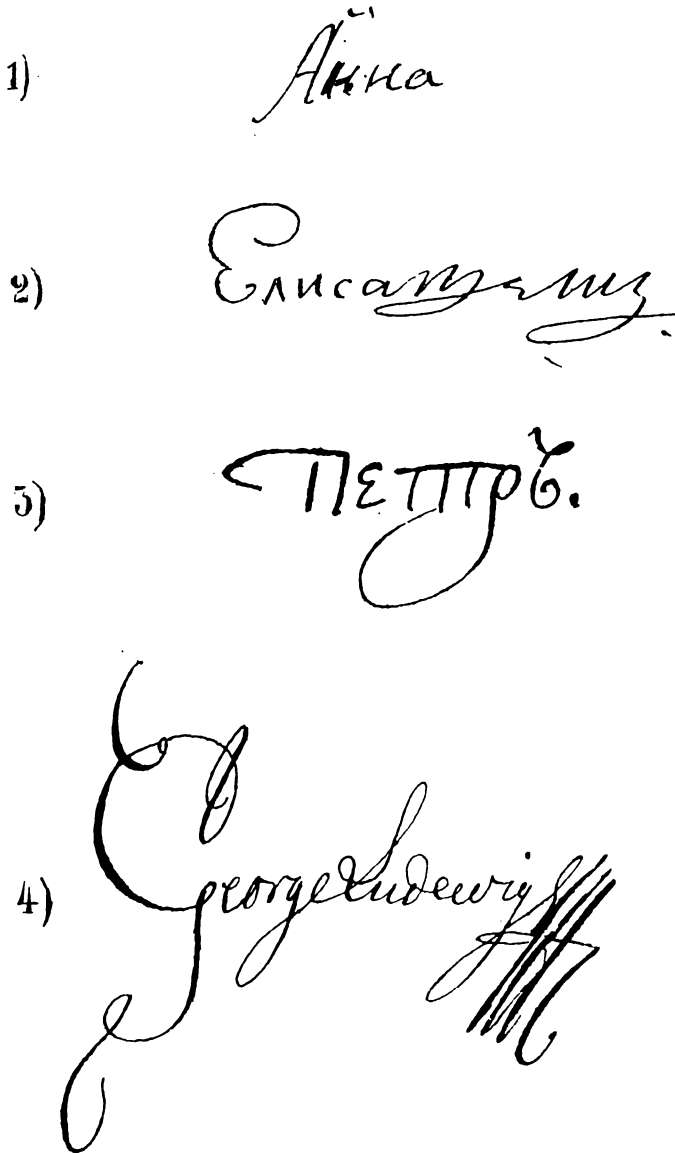 1) Анна
2) Елисаветъ
3) Петръ.
4) George Ludewig